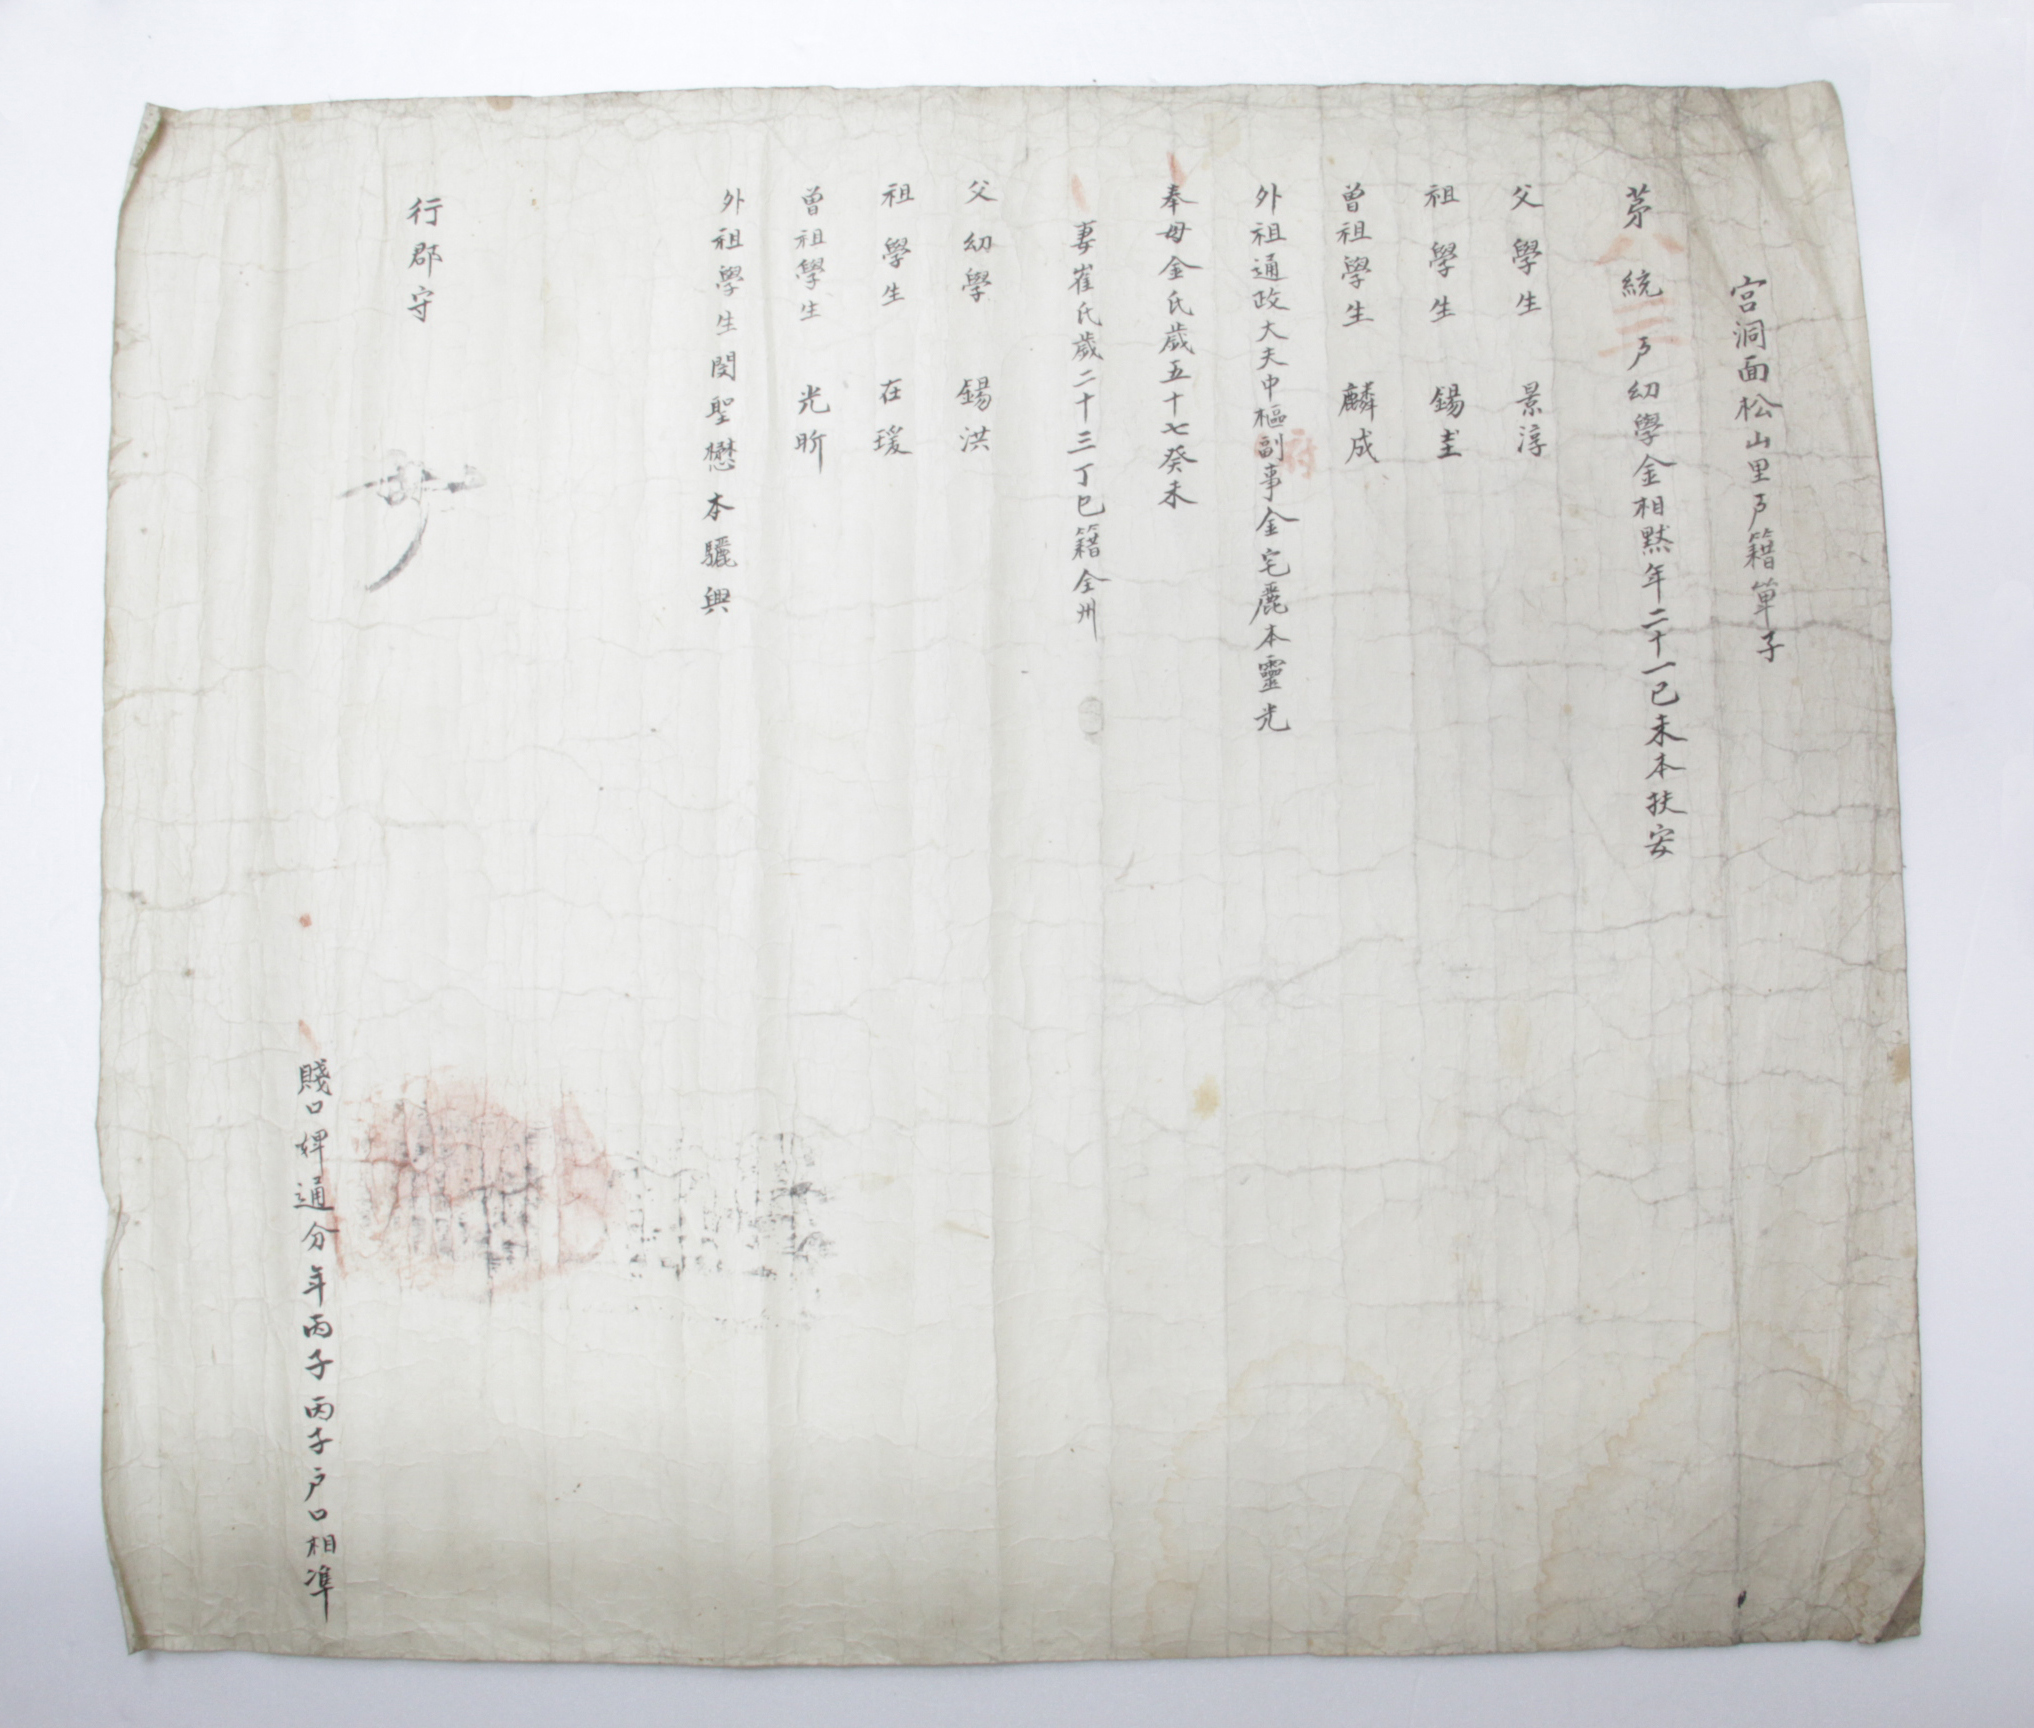 宮洞面松山里戶籍單子
茅八統三戶幼學金相黙年二十一己未本扶安
父學生 景淳
祖學生 錫圭
曾祖學生 麟成
外祖通政大夫中樞副事金宅麗本靈光
府
奉母金氏歲五十七癸未
妻崔氏歲二十三丁巳籍全州
父幼學 錫洪
祖學生 在瑗
曾祖學生 光昕
外祖學生閔聖懋本驪興
行郡守
賤口婢通分年丙子丙子戶口相準